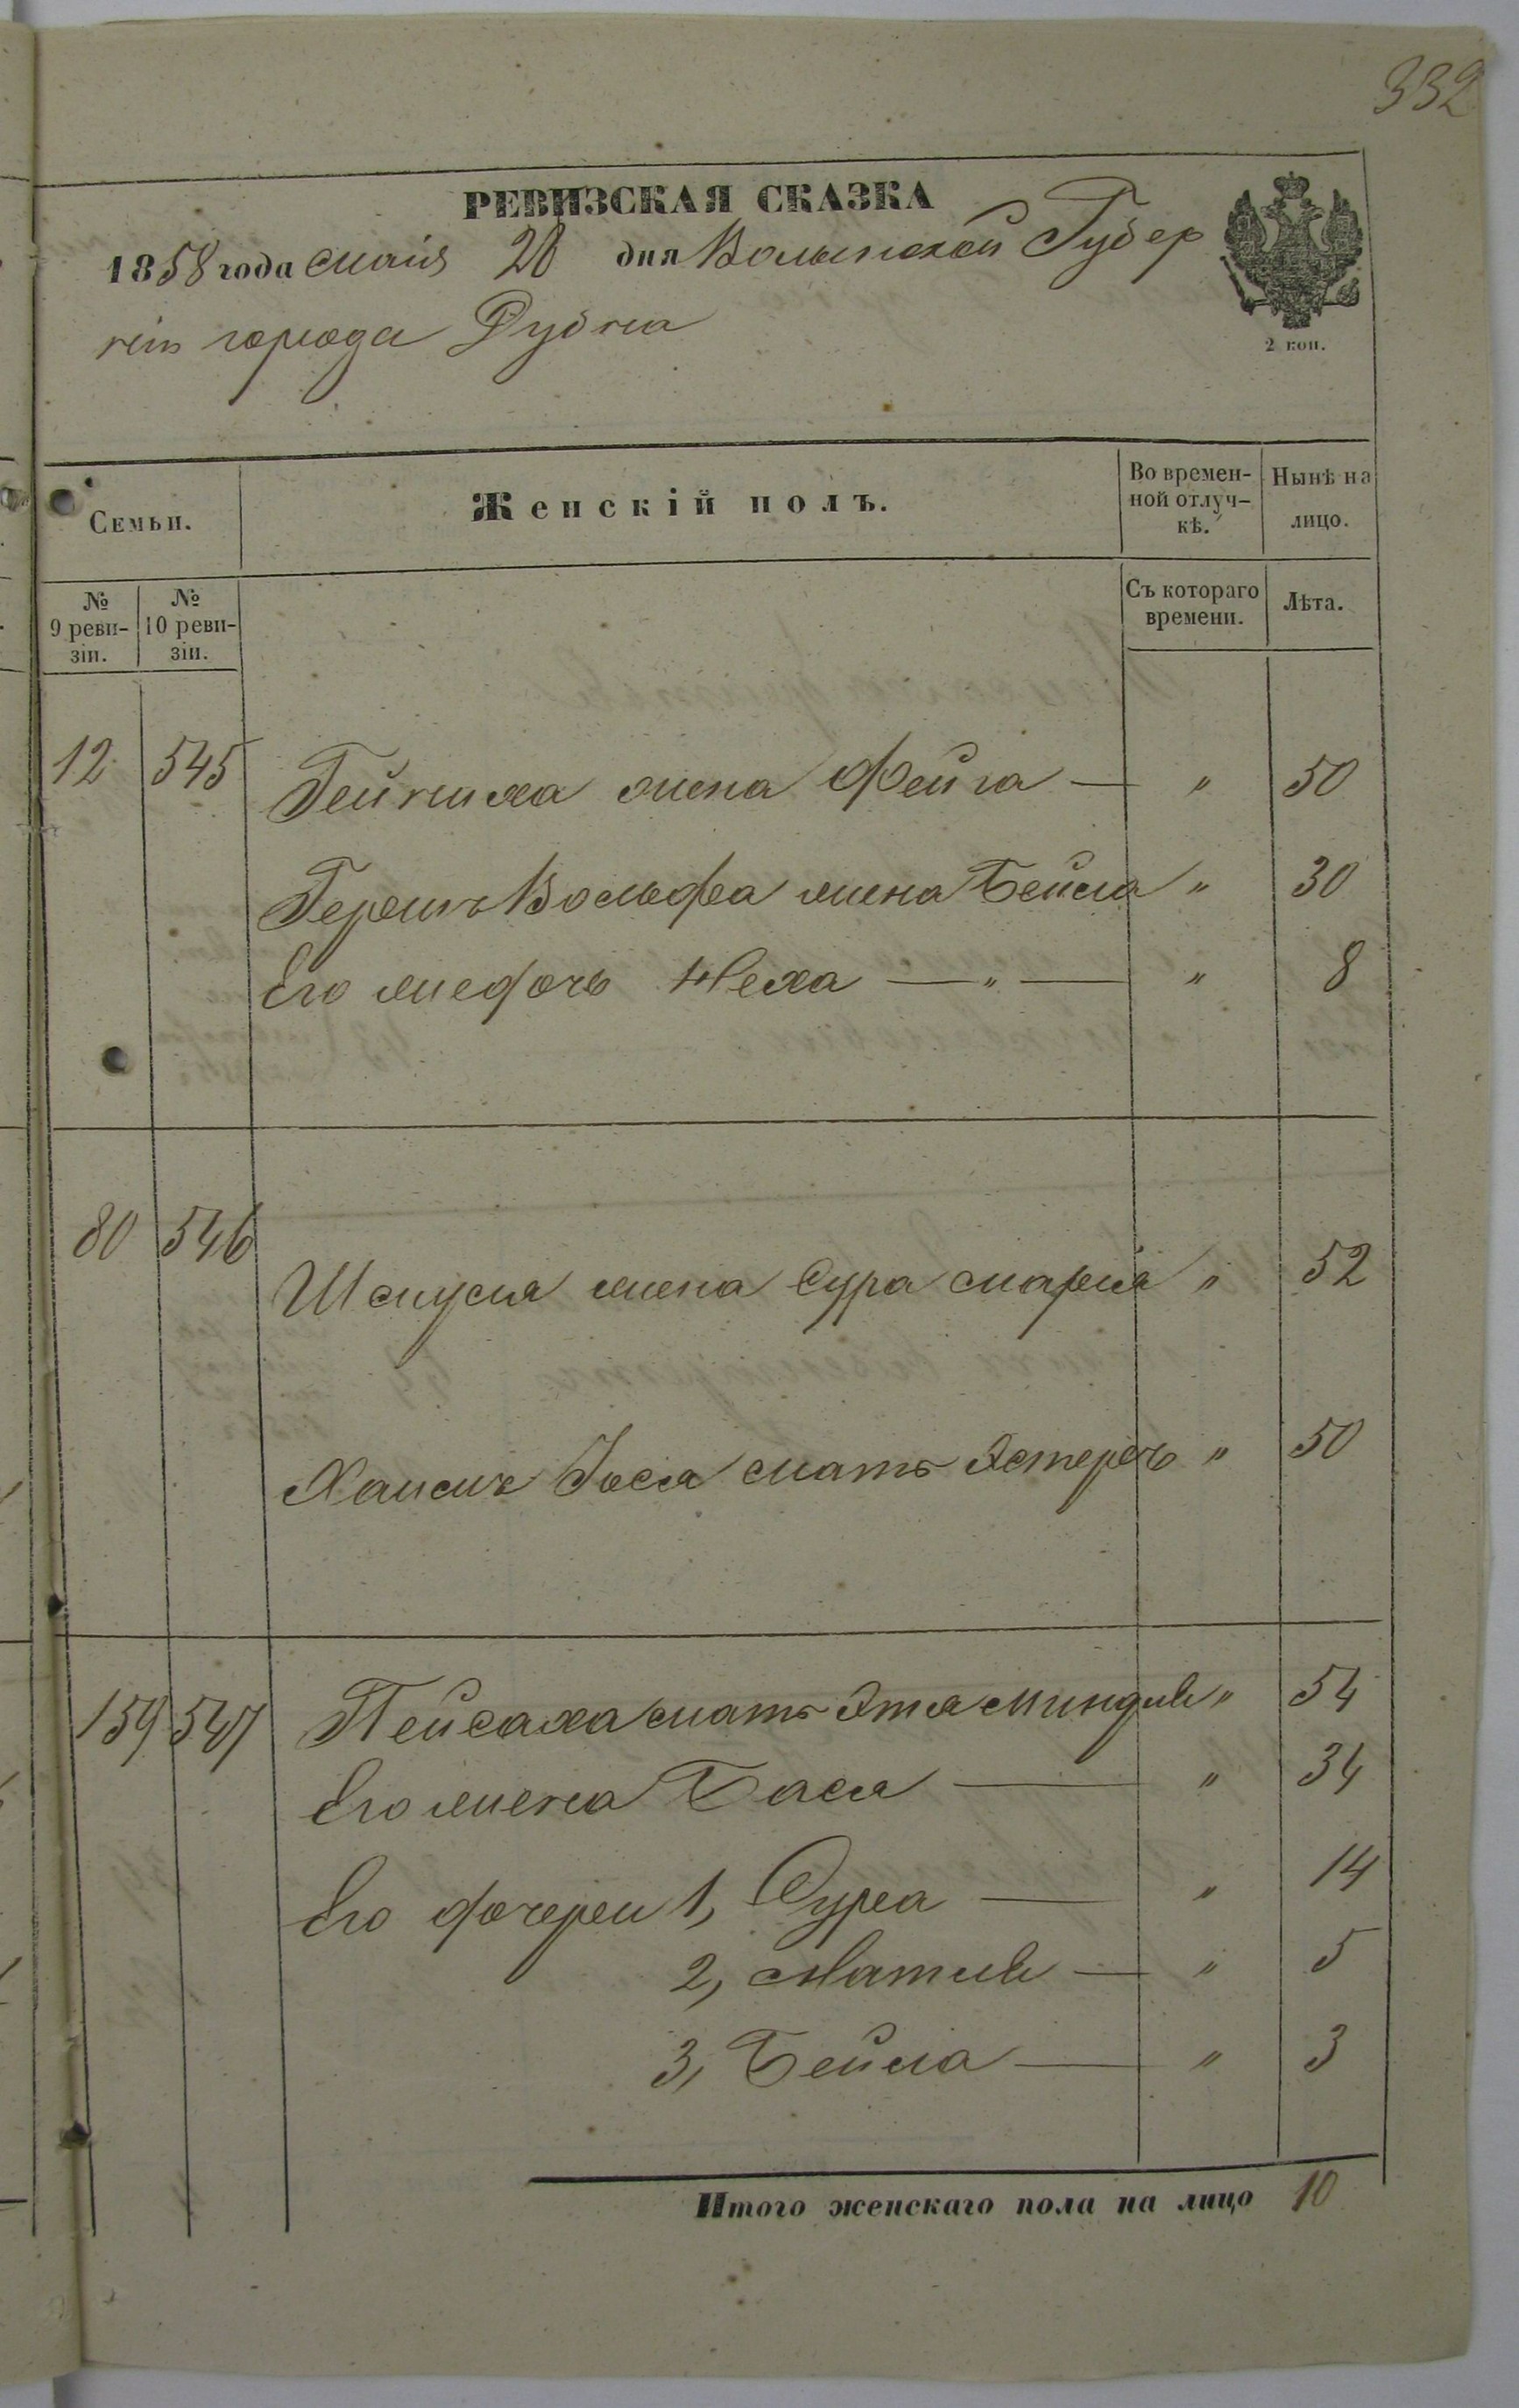 332
РЕВИЗСКАЯ СКАЗКА
1858 года Маія 28 дня Волынской Губер
ніи города Дубна
2 коп.
Семьи.
Женскій полъ.
Во времен-
ной отлуч-
кѣ.
Нынѣ на
лицо.
№
9 реви-
зіи.
№
10 реви-
зіи.
Съ котораго
времени.
Лѣта.
12 545 Гейниха жена Фейга — " 50
Гершъ Вольфа жена Бейла " 30
Его же дочь Неха — " — " 8
80 546
Шмуля жена Сура Марья " 52
Хаимъ Іося мать Эстеръ " 50
159 547 Пейсаха мать Этя Миндля " 54
Его жена Бася — " 34
Его дочери 1, Сура — " 14
2, Матля — " 5
3, Бейла — " 3
Итого женскаго пола на лицо 10